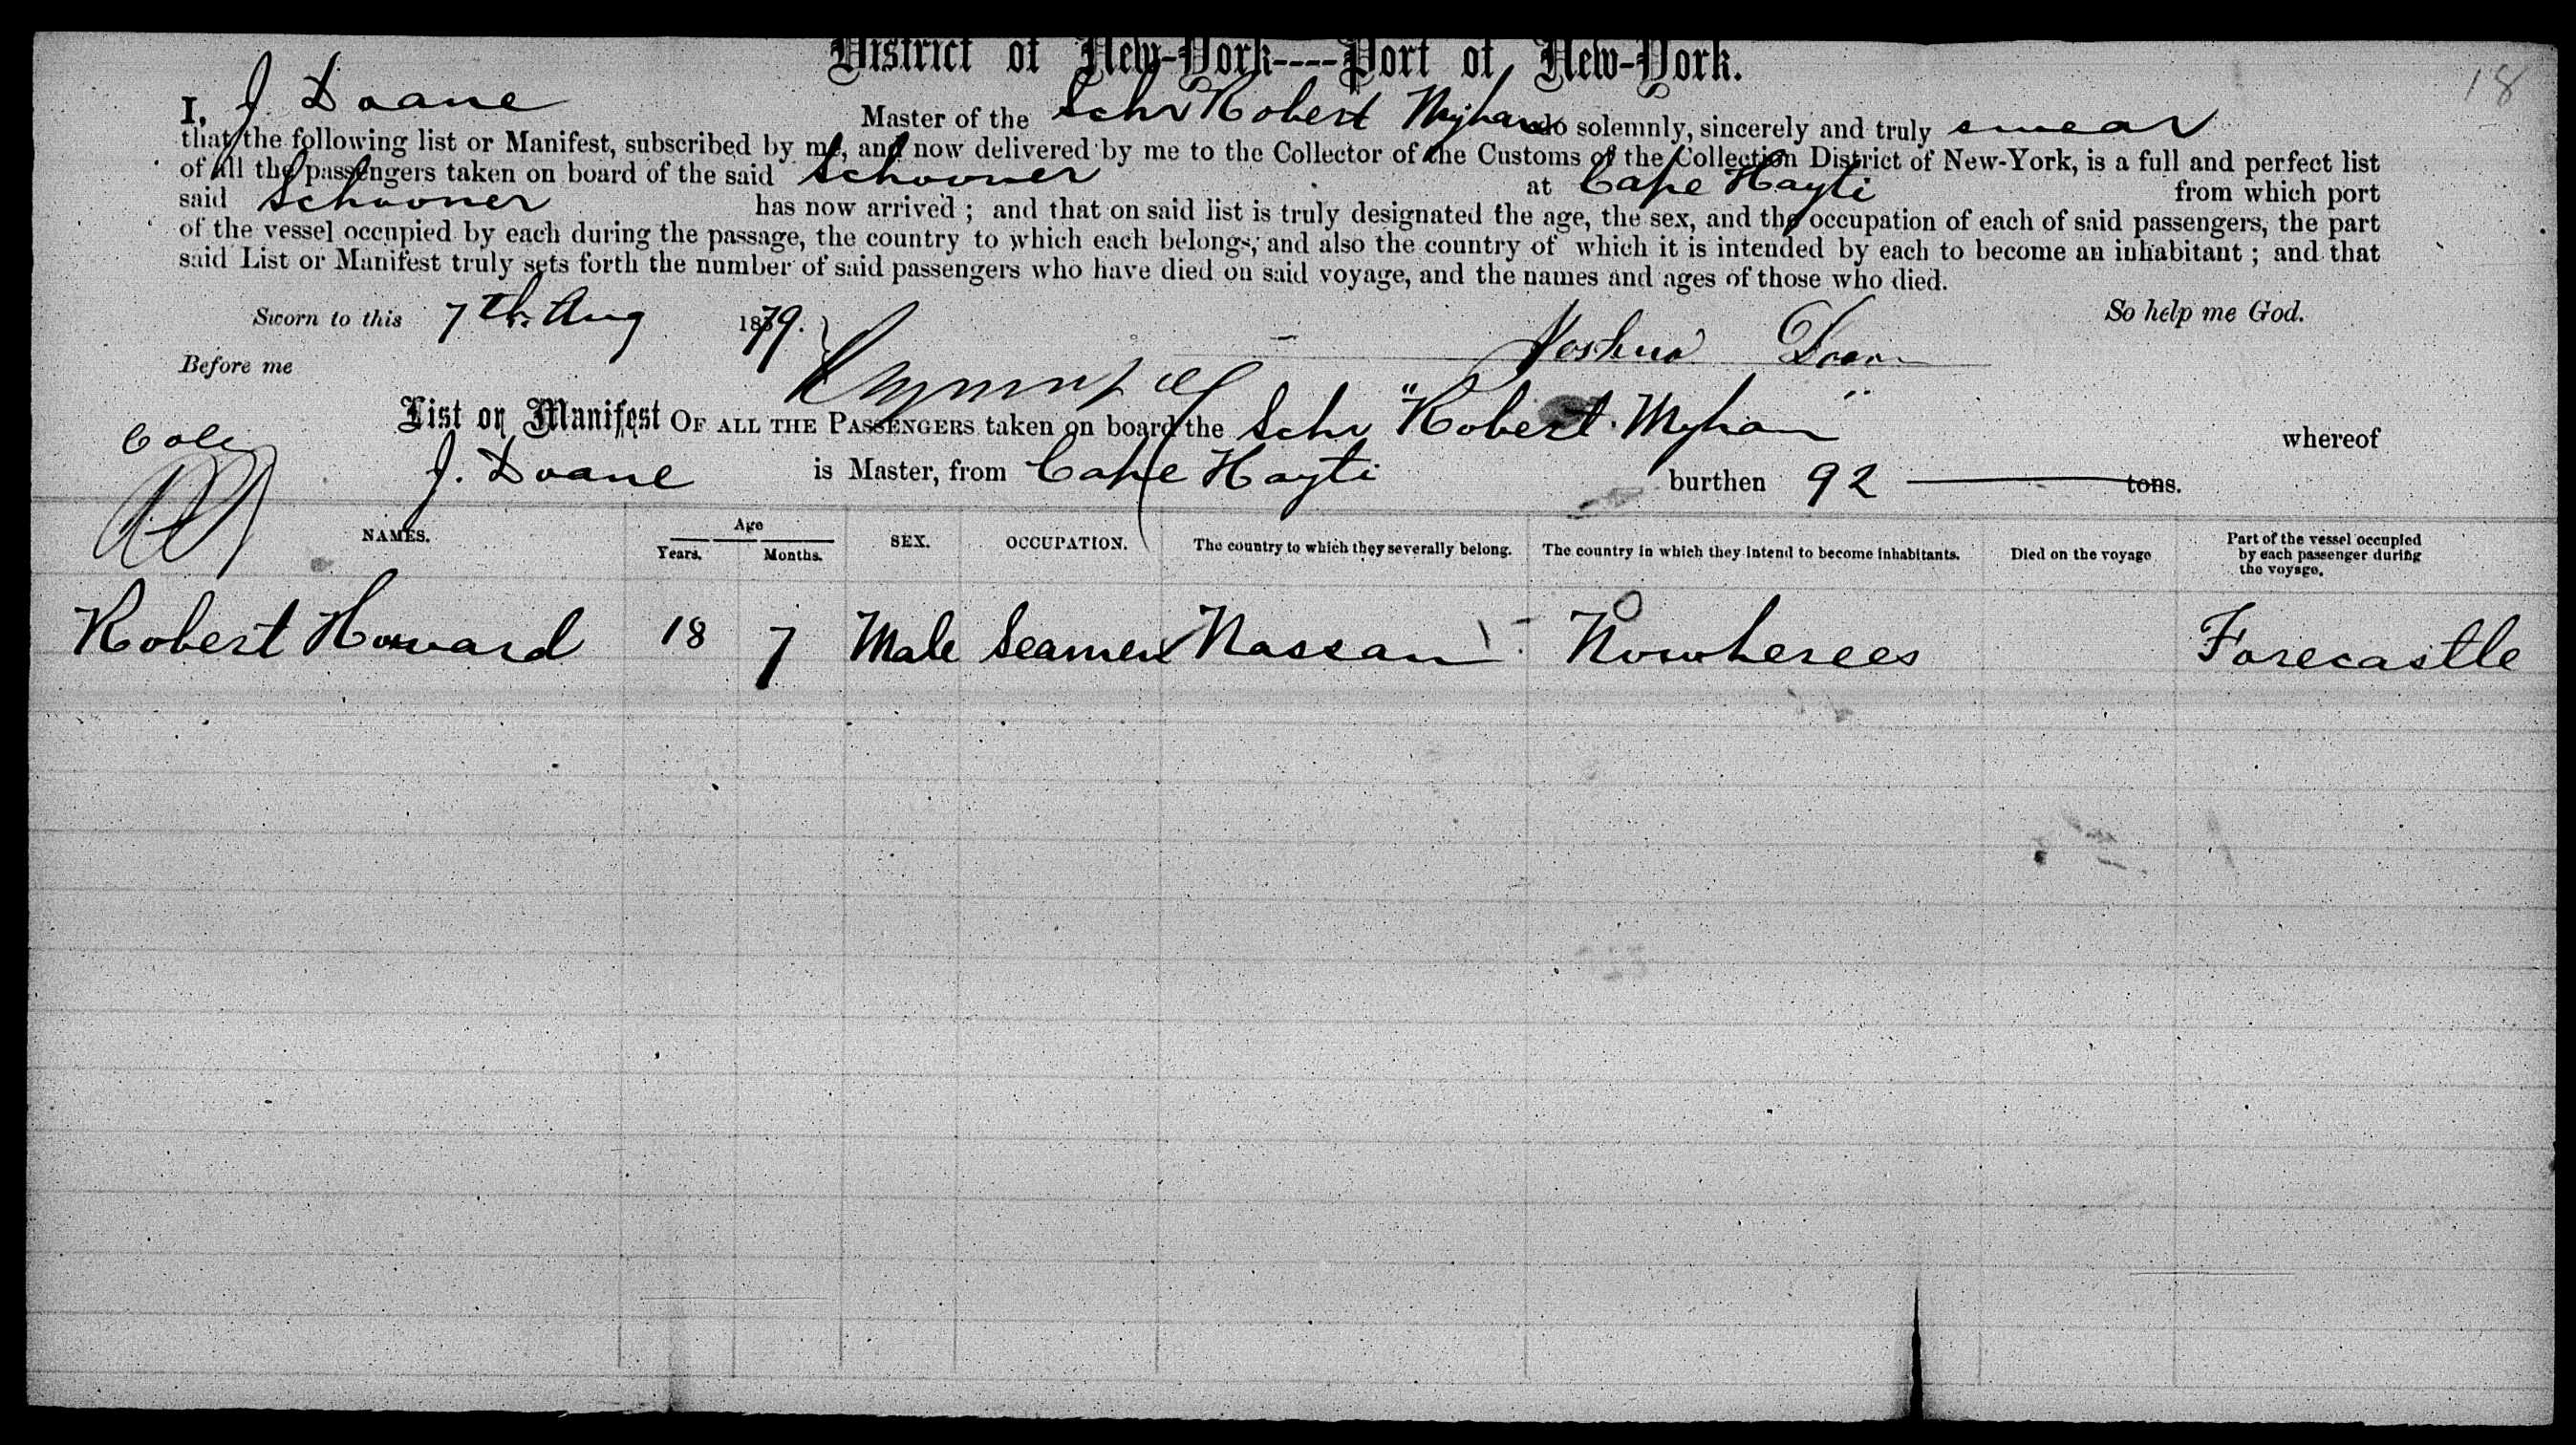 District of New-York----Port of New-York.
18
I, J. Doane Master of the Schr Robert Myhan do solemnly, sincerely and truly swear
that the following list or Manifest, subscribed by me, and now delivered by me to the Collector of the Customs of the Collection District of New-York, is a full and perfect list
of all the passengers taken on board of the said Schooner at Cape Hayti from which port
said Schooner has now arrived ; and that on said list is truly designated the age, the sex, and the occupation of each of said passengers, the part
of the vessel occupied by each during the passage, the country to which each belongs, and also the country of which it is intended by each to become an inhabitant ; and that
said List or Manifest truly sets forth the number of said passengers who have died on said voyage, and the names and ages of those who died.
Sworn to this 7th Aug 1879. So help me God.
Joshua Doane
Before me
List or Manifest OF ALL THE PASSENGERS taken on board the Schr "Robert Myhan" whereof
J. Doane is Master, from Cape Hayti burthen 92 tons.
NAMES. Age Years. Months. SEX. OCCUPATION. The country to which they severally belong. The country in which they intend to become inhabitants. Died on the voyage Part of the vessel occupied by each passenger during the voyage.
Robert Howard 18 7 Male Seamen Nassau Nowherees Forecastle